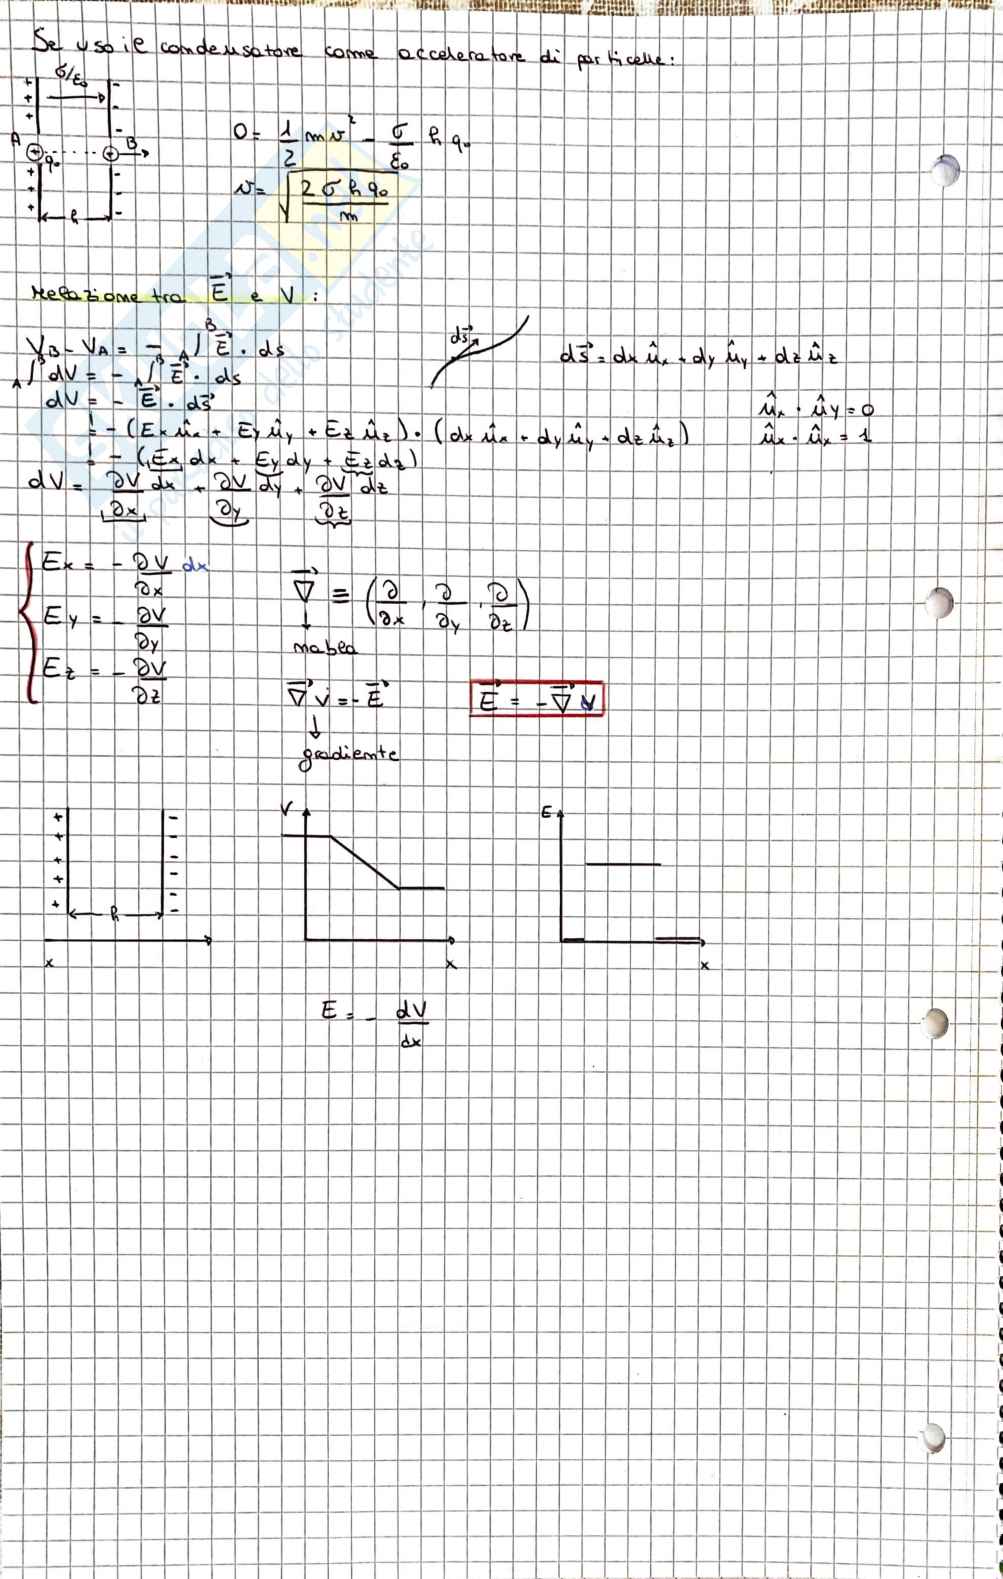 Se uso il condensatore come acceleratore di particelle:
σ/ε₀
A q₀ B
h
0 = 1/2 m v² - σ/ε₀ h q₀
v = √(2 σ h q₀ / m)
relazione tra E⃗ e V :
V_B - V_A = - _A∫^B E⃗ · ds
_A∫^B dV = - _A∫^B E⃗ · ds
ds⃗
ds⃗ = dx û_x + dy û_y + dz û_z
dV = - E⃗ · ds⃗
û_x · û_y = 0
= - (E_x û_x + E_y û_y + E_z û_z) · (dx û_x + dy û_y + dz û_z)
û_x · û_x = 1
= - (E_x dx + E_y dy + E_z dz)
dV = ∂V/∂x dx + ∂V/∂y dy + ∂V/∂z dz
E_x = - ∂V/∂x dx
∇⃗ ≡ (∂/∂x , ∂/∂y , ∂/∂z)
E_y = - ∂V/∂y
nabla
E_z = - ∂V/∂z
∇⃗ V = - E⃗
E⃗ = - ∇⃗ V
gradiente
+ + + + + - - - - - -
h
x
V
x
E
x
E = - dV/dx